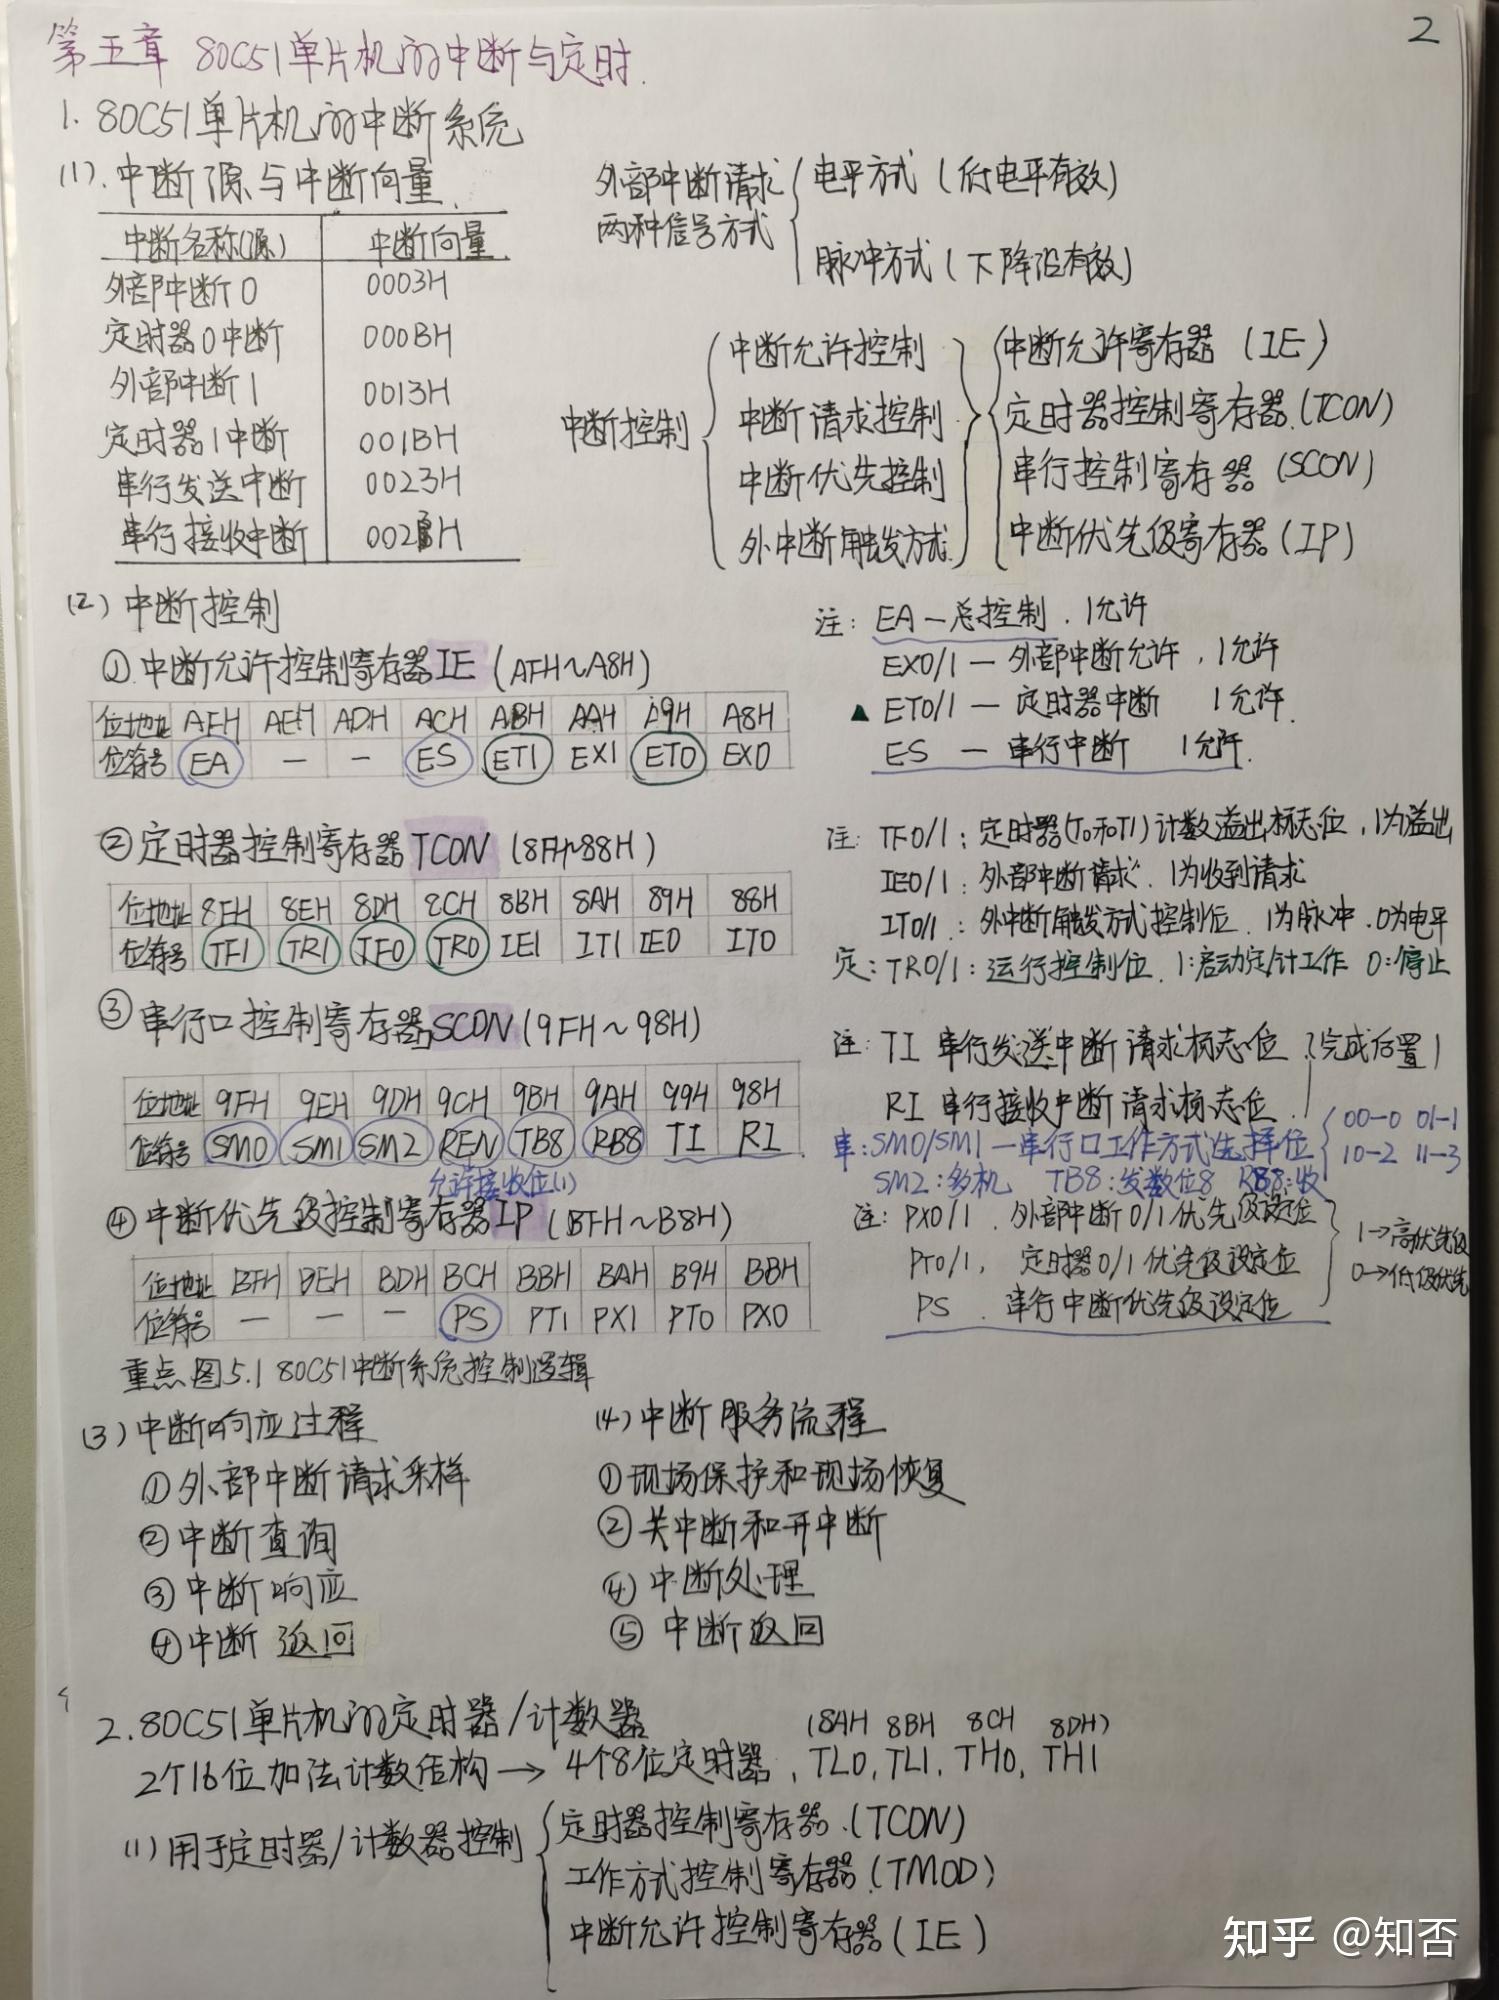 2
第五章 80C51单片机的中断与定时.
1. 80C51单片机的中断系统
(1). 中断源与中断向量.
中断名称(源) 中断向量
外部中断0 0003H
定时器0中断 000BH
外部中断1 0013H
定时器1中断 001BH
串行发送中断 0023H
串行接收中断 002 H
外部中断请求 两种信号方式
电平方式(低电平有效)
脉冲方式(下降沿有效)
中断控制
中断允许控制
中断请求控制
中断优先控制
外中断触发方式.
中断允许寄存器 (IE)
定时器控制寄存器.(TCON)
串行控制寄存器 (SCON)
中断优先级寄存器(IP)
(2) 中断控制
①.中断允许控制寄存器IE (AFH~A8H)
位地址 AFH AEH ADH ACH ABH AAH A9H A8H
位符号 EA — — ES ET1 EX1 ET0 EX0
注: EA—总控制. 1允许
EX0/1 — 外部中断允许, 1允许
▲ ET0/1 — 定时器中断 1允许.
ES — 串行中断 1允许.
② 定时器控制寄存器TCON (8FH~88H)
位地址 8FH 8EH 8DH 8CH 8BH 8AH 89H 88H
位符号 TF1 TR1 TF0 TR0 IE1 IT1 IE0 IT0
注: TF0/1: 定时器(T0和T1)计数溢出标志位, 1为溢出
IE0/1: 外部中断请求. 1为收到请求
IT0/1: 外中断触发方式控制位. 1为脉冲. 0为电平
定: TR0/1: 运行控制位. 1:启动定/计工作 0:停止
③ 串行口控制寄存器SCON(9FH~98H)
位地址 9FH 9EH 9DH 9CH 9BH 9AH 99H 98H
位符号 SM0 SM1 SM2 REN TB8 RB8 TI RI
允许接收位(1)
注: TI 串行发送中断请求标志位 完成后置1
RI 串行接收中断请求标志位.
串:SM0/SM1—串行口工作方式选择位 00—0 01—1
10—2 11—3
SM2:多机 TB8:发数位8 RB8:收
④ 中断优先级控制寄存器IP (BFH~B8H)
位地址 BFH BEH BDH BCH BBH BAH B9H BBH
位符号 — — — PS PT1 PX1 PT0 PX0
注: PX0/1. 外部中断0/1优先级设定位
PT0/1, 定时器0/1优先级设定位
PS . 串行中断优先级设定位
1→高优先级
0→低级优先
重点 图5.1 80C51中断系统控制逻辑
(3)中断响应过程
①外部中断请求采样
②中断查询
③中断响应
④中断返回
(4)中断服务流程
①现场保护和现场恢复
②关中断和开中断
④中断处理
⑤ 中断返回
2.80C51单片机的定时器/计数器
(8AH 8BH 8CH 8DH)
2个16位加法计数结构→4个8位定时器, TL0, TL1, TH0, TH1
(1)用于定时器/计数器控制
定时器控制寄存器.(TCON)
工作方式控制寄存器.(TMOD)
中断允许控制寄存器(IE)
知乎 @知否